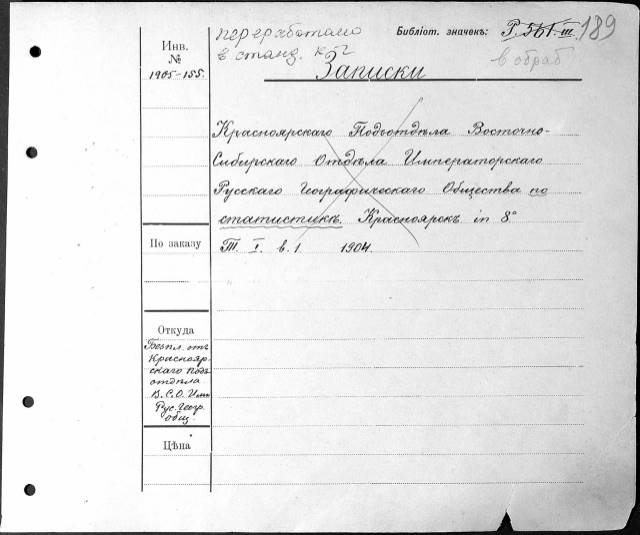 переработано
в станд. к-г
Библіот. значекъ: Р. 561. III. 189
в обраб
Инв.
№
1905-155.
Записки
Красноярскаго Подъотдѣла Восточно-
Сибирскаго Отдѣла Императорскаго
Русскаго Географическаго Общества по
статистикѣ. Красноярскъ in 8°
Т. I. в. 1 1904.
По заказу
Откуда
Безпл. отъ
Краснояр-
скаго Подъ
отдѣла
В. С. О. Имп
Рус. Геогр.
общ.
Цѣна